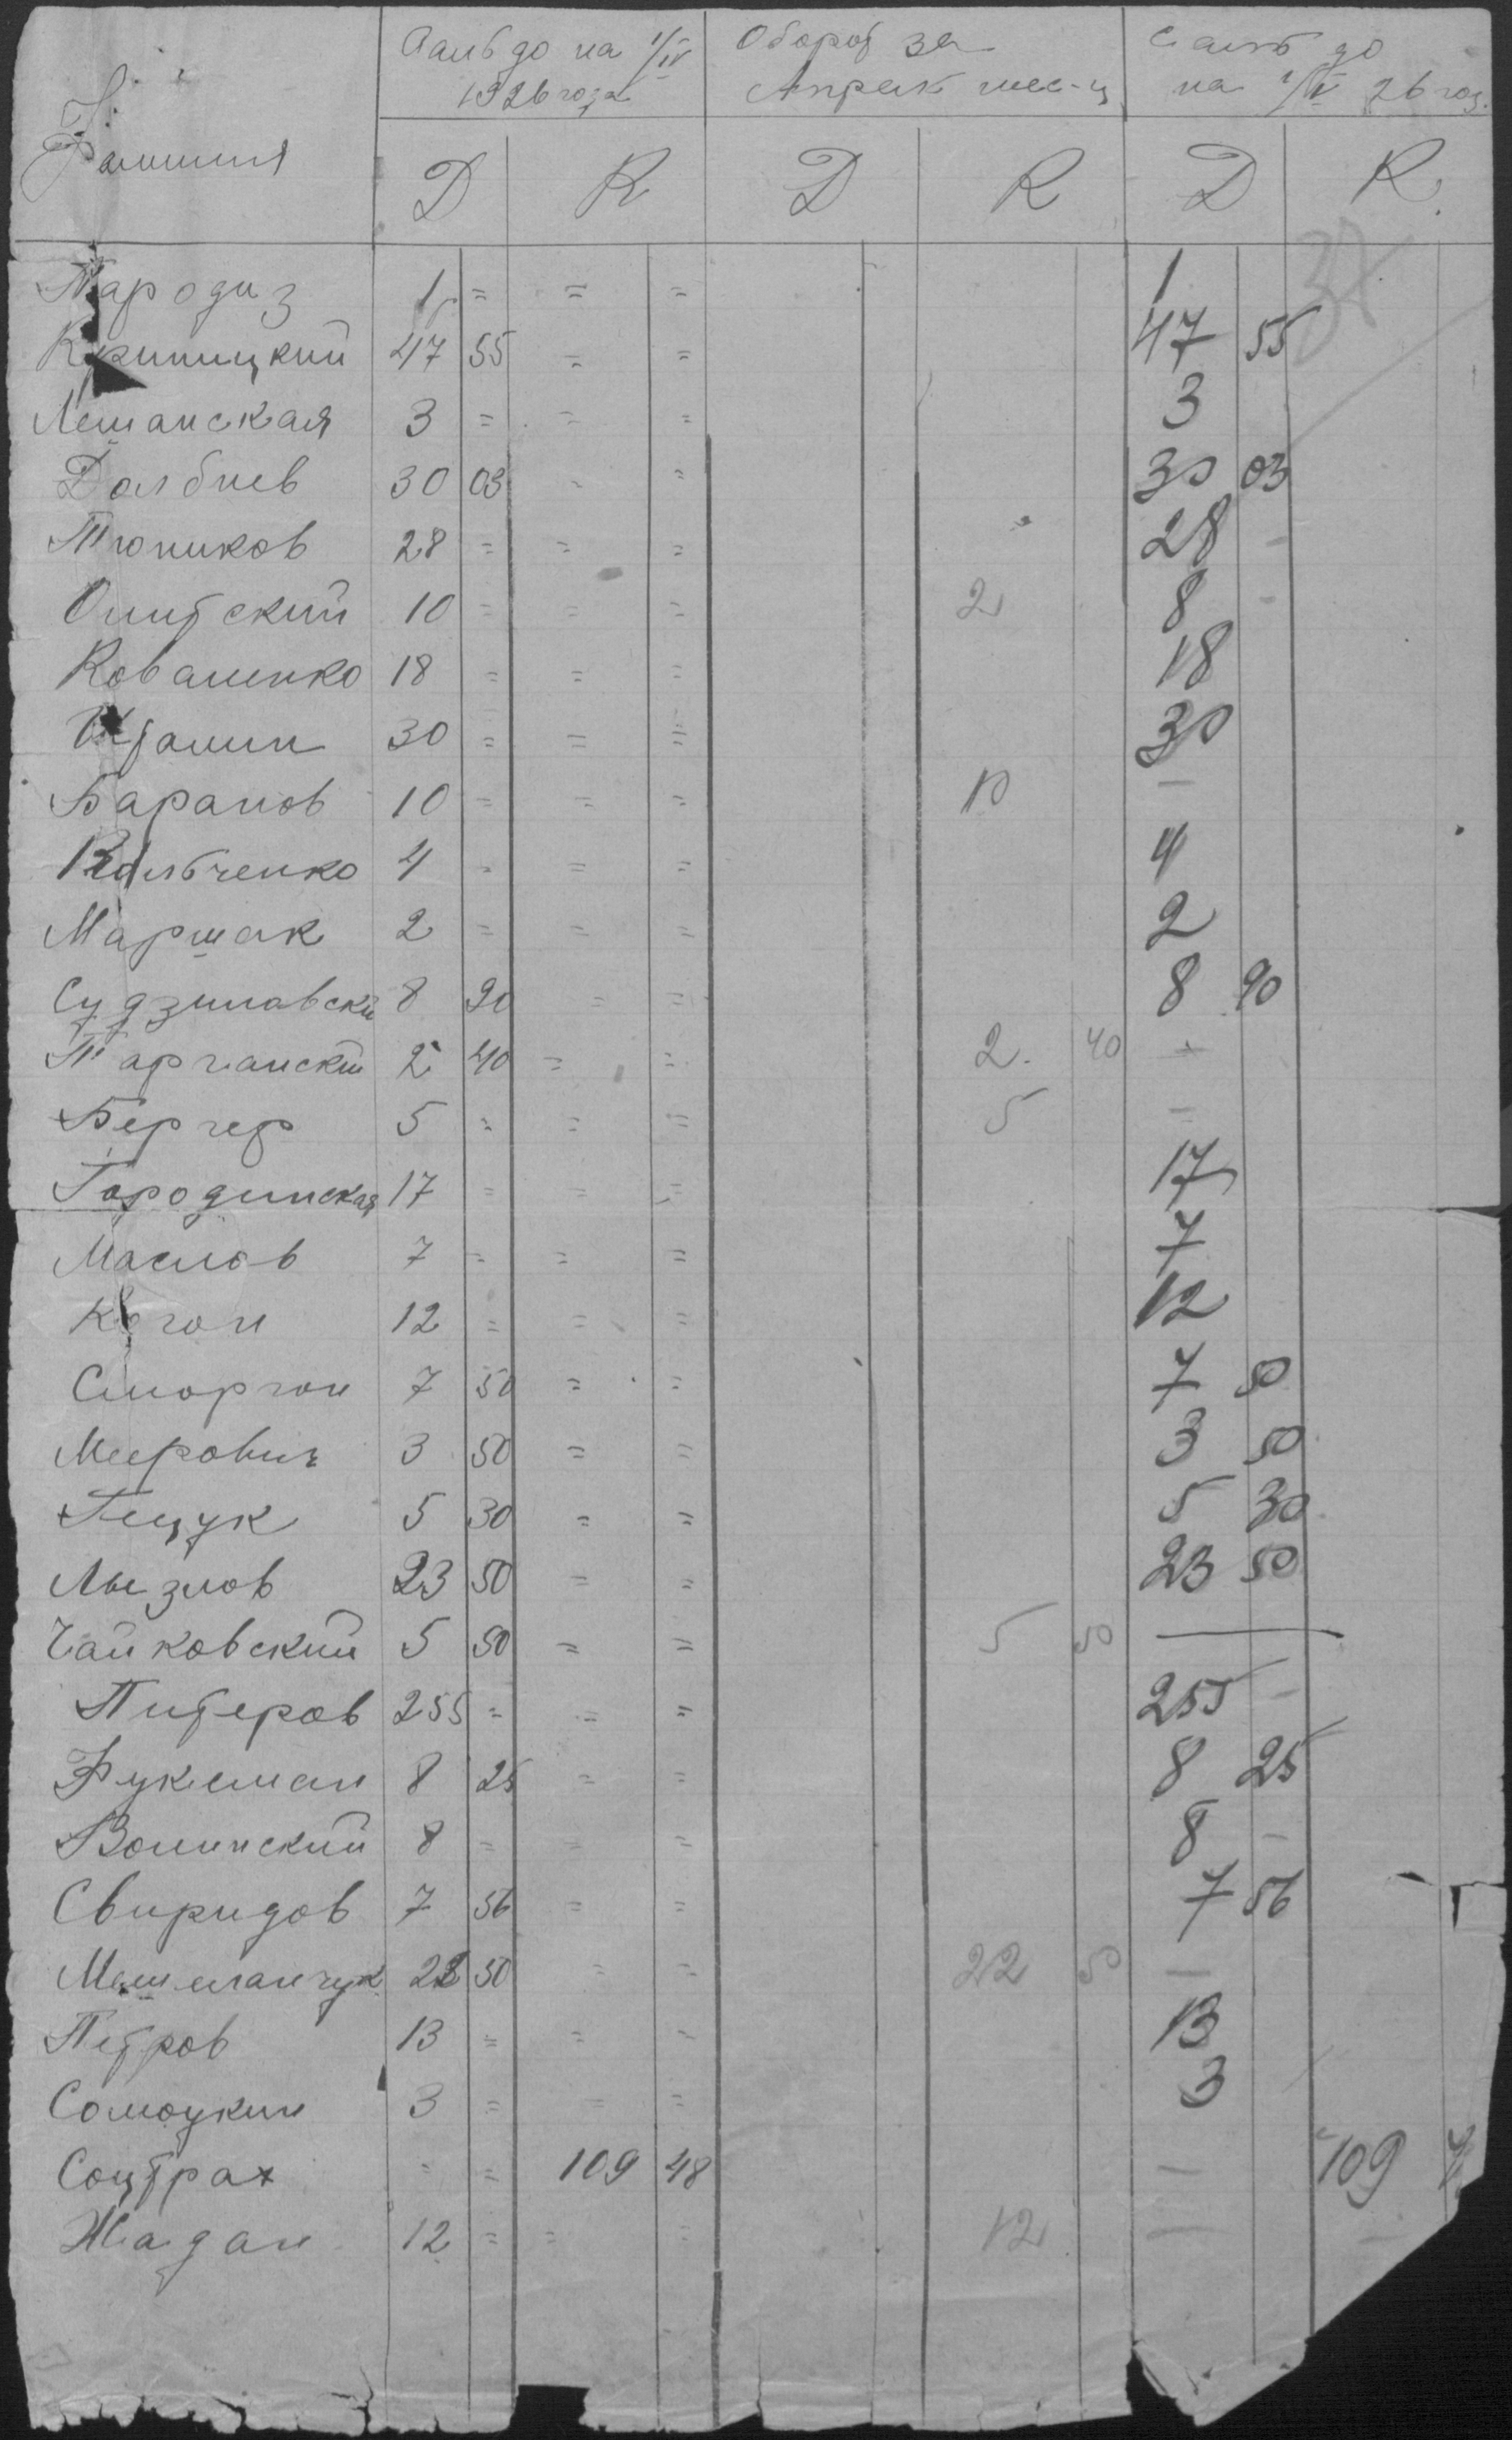 Фамилия Сальдо на 1/IV 1926 года Оборот за Апрель мес-ц Сальдо на 1/V 26 год.
D K D K D K.
37
Пародиз 1 = = = 1
Криницкий 47 55 = = 47 55
Лешанская 3 = = = 3
Долбнев 30 03 - = 30 03
Тюников 28 = = = 28 -
Ошитский 10 = = = 2 8 -
Коваленко 18 = = = 18
30 = = = 30
Баранов 10 = = = 10 —
4 - = = 4
Маршак 2 = = = 2
Судзиловский 8 90 = = 8 90
Тарганский 2 40 = = 2. 40 —
Бергер 5 = = = 5 —
Городинская 17 = = = 17
Маслов 7 = = = 7
Коган 12 = = = 12
Сморгон 7 50 = = 7 50
Меерович 3 50 = = 3 50
Гещук 5 30 = = 5 30
Лызлов 23 50 = = 23 50
Чайковский 5 50 = = 5 50 —
Питеров 255 = = = 255 -
Фукельман 8 25 = = 8 25
Волинский 8 = = = 8 -
Свиридов 7 56 = = 7 56
22 50 = = 22 50 —
Петров 13 = = = 13
Самоукин 3 = = = 3
Соцстрах = = 109 48 — 109
Жадан 12 = = = 12 —